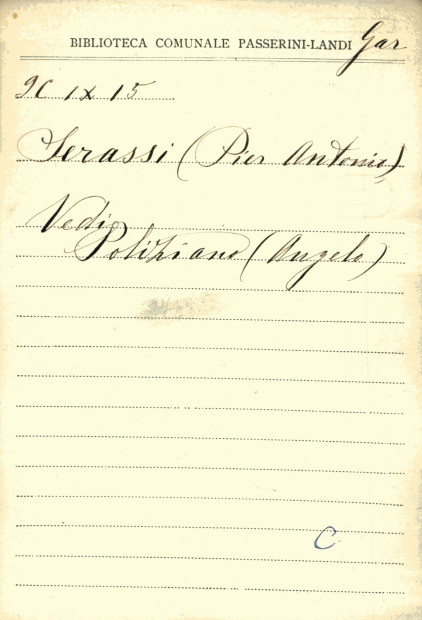 BIBLIOTECA COMUNALE PASSERINI-LANDI Gar
9C IX 15
Serassi (Pier Antonio)
Vedi
Poliziano (Angelo)
C